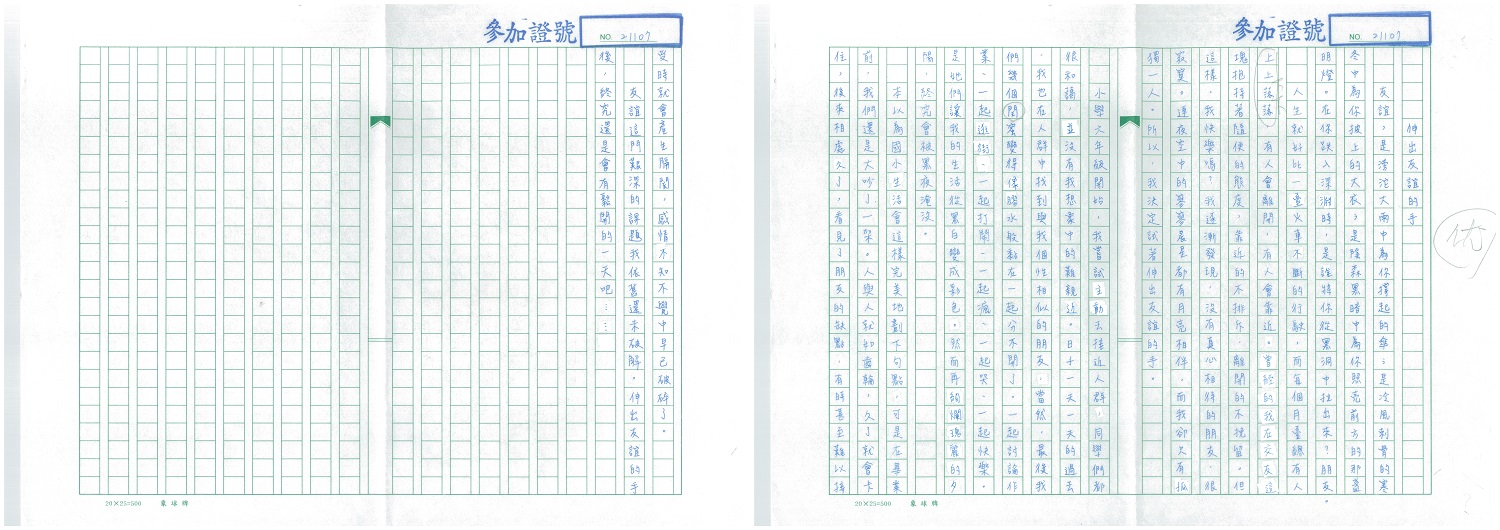 參加證號 NO. 21107
伸出友誼的手
友誼，是滂沱大雨中為你撐起的傘；是冷風刺骨的寒
冬中為你披上的大衣；是陰森黑暗中為你照亮前方的那盞
明燈。在你跌入深淵時，是誰將你從黑洞中拉出來？朋友。
人生就好比一臺火車不斷的行駛，而每個月臺總有人
上上落落，有人會離開，有人會靠近。曾經的我在交友這
塊抱持著隨便的態度，靠近的不排斥，離開的不挽留。但
這樣，我快樂嗎？我逐漸發現，沒有真心相待的朋友，很
寂寞。連夜空中的寥寥晨星都有月亮相伴，而我卻欠有孤
獨一人。所以，我決定試著伸出友誼的手。
小學六年級開始，我嘗試主動去接近人群，同學們都
很和藹，並沒有我想象中的難親近。日子一天一天的過去
，我也在人群中找到與我個性相似的朋友，當然，最後我
們幾個閨蜜變得像膠水般黏在一起分不開了。一起討論作
業、一起逛街、一起打鬧、一起瘋、一起哭、一起快樂。
是她們讓我的生活從黑白變成彩色。然而再絢爛瑰麗的夕
陽，終究會被黑夜淹沒。
本以為國小生活會這樣完美地劃下句點，可是在畢業
前，我們還是大吵了一架。人與人就如齒輪，久了就會卡
住，後來相處久了，看見了朋友的缺點，有時甚至難以接
20×25=500 象球牌
參加證號 NO. 21107
受時就會產生隔閡，感情不知不覺中早已破碎了。
友誼這門艱深的課題我依舊還未破解。伸出友誼的手
後，終究還是會有鬆開的一天吧……
20×25=500 象球牌